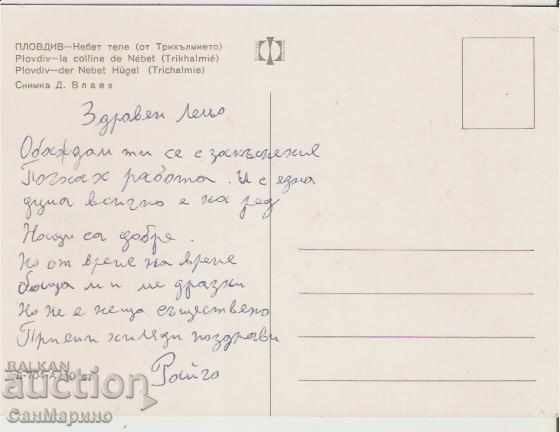 ПЛОВДИВ—Небет тепе (от Трихълмието)
Plovdiv—la colline de Nébet (Trikhalmié)
Plovdiv—der Nebet Hügel (Trichalmie)
Снимка Д. Влаев
Здравей Лельо
Обаждам ти се с закъснение
Почнах работа. И с една
дума всичко е на ред
Нащи са добре.
Но от време на време
баща ми ме дразни
Но не е неща съществено
Приеми хиляди поздрави
Райчо
BALKAN
auction
СанМарино